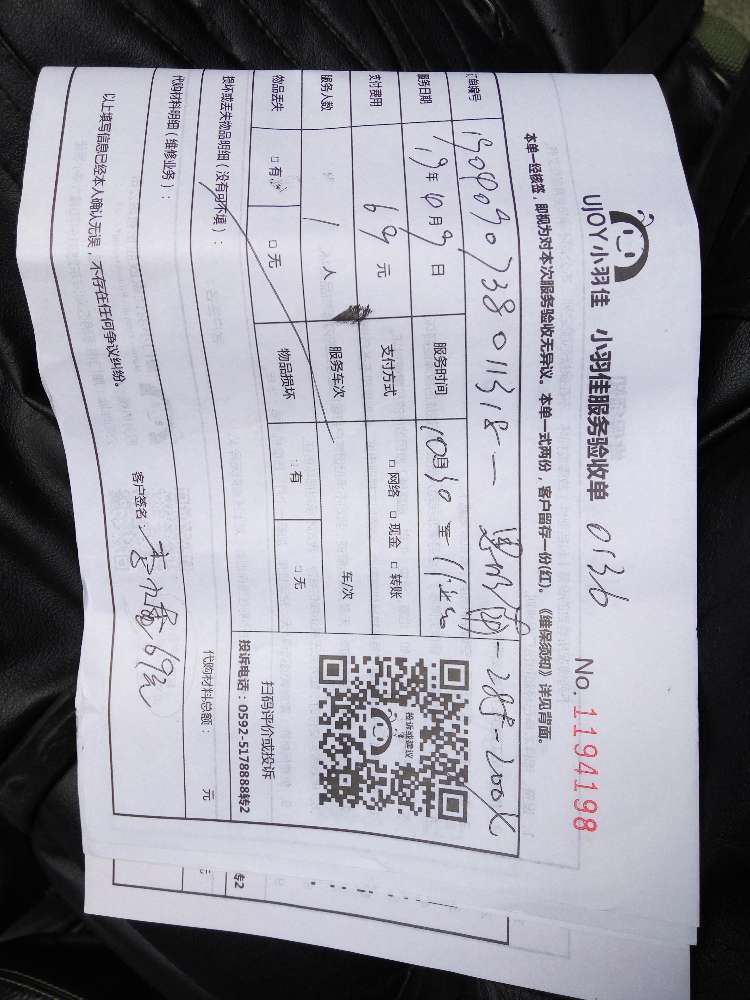 UJOY小羽佳 小羽佳服务验收单 0136 No.1194198
本单一经核签，即视为对本次服务验收无异议。本单一式两份，客户留存一份(红)。《维保须知》详见背面。
订单编号
服务日期 19年4月9日 服务时间 至
支付费用 69元 支付方式 □网络 □现金 □转账
服务人数 1人 服务车次 车/次
物品丢失 □有 □无 物品损坏 □有 □无
损坏或丢失物品明细（没有可不填）：
投诉或建议
扫码评价或投诉
投诉电话：0592-5178888转2
代购材料明细（维修业务）： 代购材料总额： 元
以上填写信息已经本人确认无误，不存在任何争议纠纷。
客户签名： 69元
转2
元